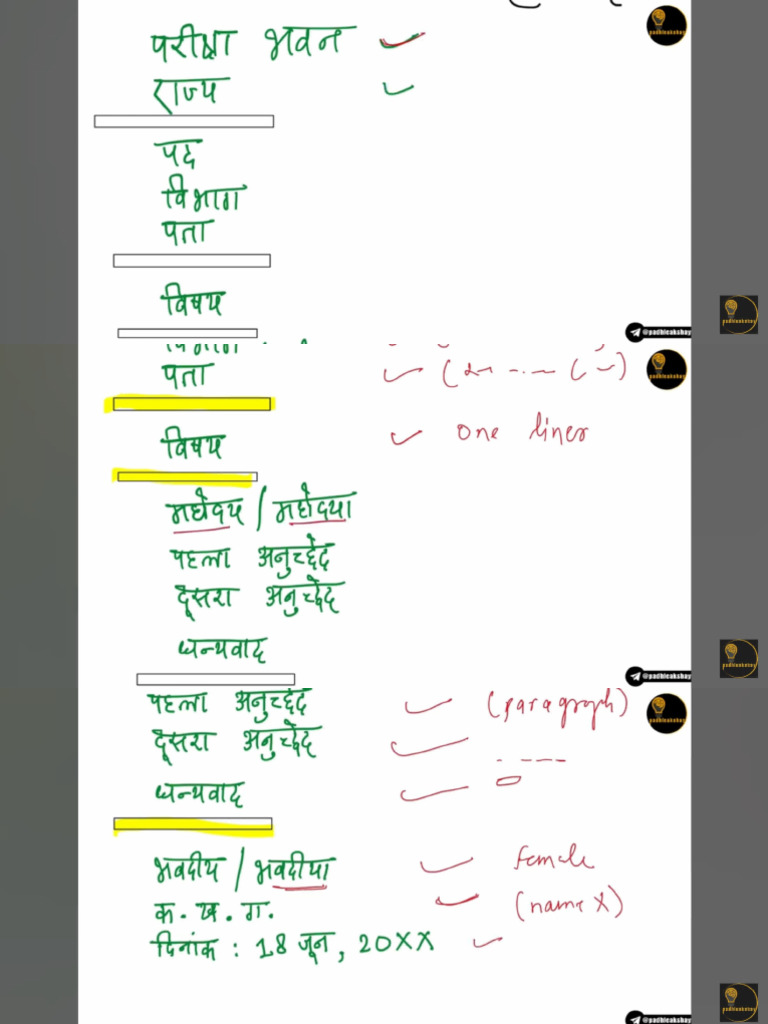 परीक्षा भवन
राज्य
पद
विभाग
पता
विषय
@padhleakshay
पता
विषय one liner
महोदय / महोदया
पहला अनुच्छेद
दूसरा अनुच्छेद
धन्यवाद
@padhleakshay
पहला अनुच्छेद (paragraph)
दूसरा अनुच्छेद
धन्यवाद
भवदीय / भवदीया female
क. ख. ग. (name X)
दिनांक : 18 जून, 20XX
@padhleakshay